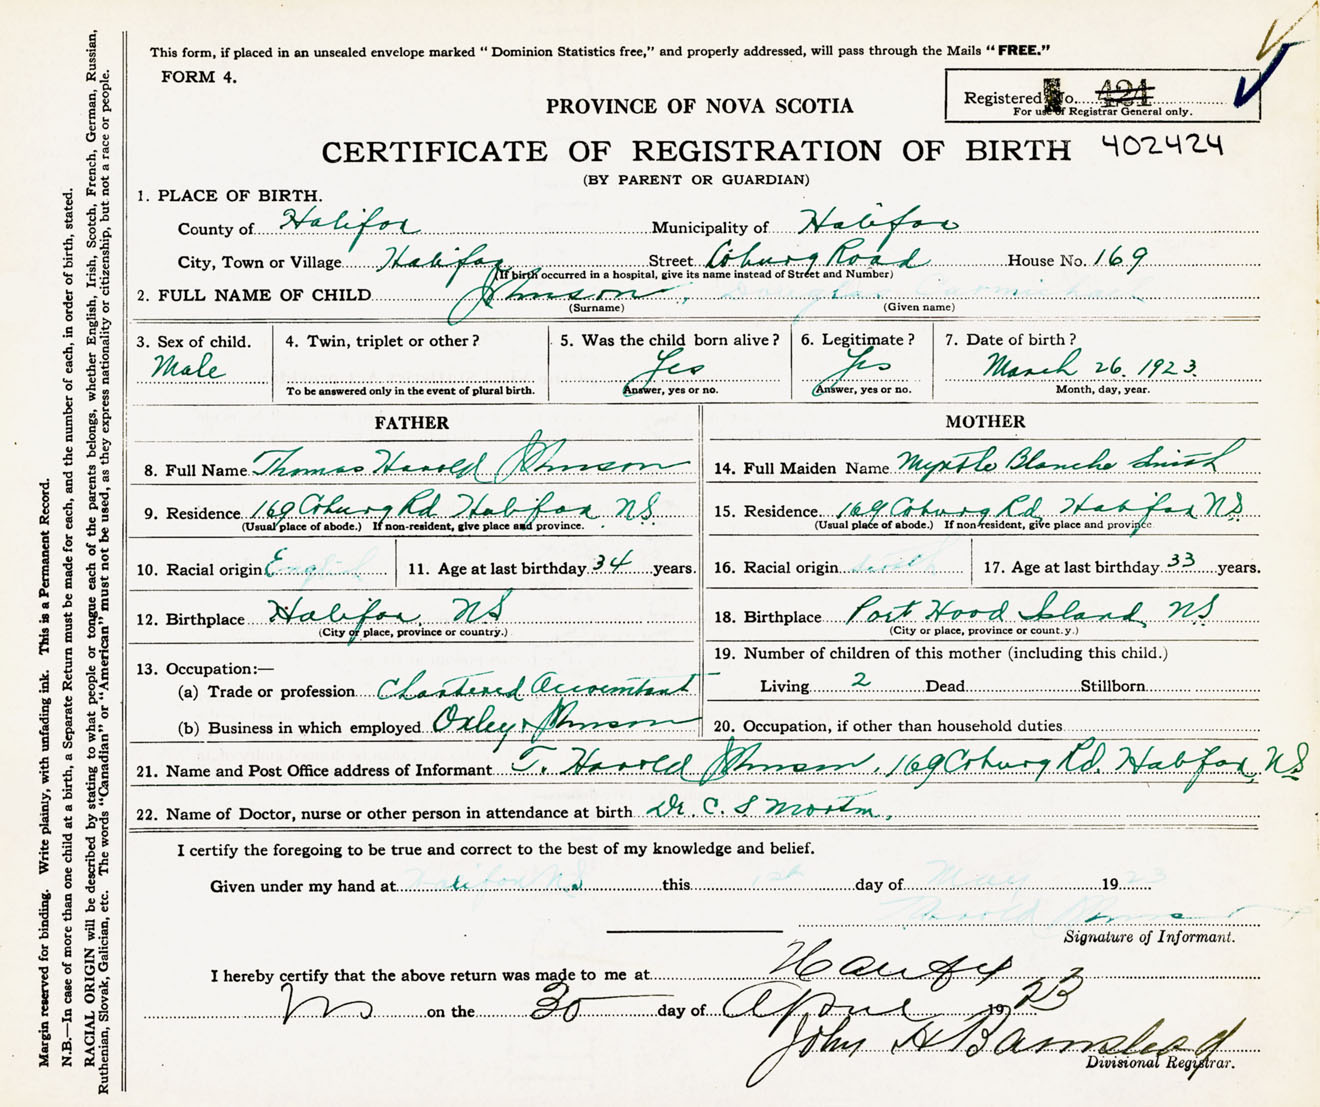 This form, if placed in an unsealed envelope marked "Dominion Statistics free," and properly addressed, will pass through the Mails "FREE."
FORM 4.
Registered No. 424
For use of Registrar General only.
PROVINCE OF NOVA SCOTIA
CERTIFICATE OF REGISTRATION OF BIRTH 402424
(BY PARENT OR GUARDIAN)
1. PLACE OF BIRTH.
County of Halifax Municipality of Halifax
City, Town or Village Halifax Street Coburg Road House No. 169
(If birth occurred in a hospital, give its name instead of Street and Number)
2. FULL NAME OF CHILD Johnson, Douglas Carmichael
(Surname) (Given name)
3. Sex of child. 4. Twin, triplet or other? 5. Was the child born alive? 6. Legitimate? 7. Date of birth?
Male Yes Yes March 26. 1923.
To be answered only in the event of plural birth. Answer, yes or no. (Answer, yes or no. Month, day, year.
FATHER MOTHER
8. Full Name Thomas Harold Johnson 14. Full Maiden Name Myrtle Blanche Smith
9. Residence 169 Coburg Rd Halifax NS. 15. Residence 169 Coburg Rd Halifax NS
(Usual place of abode.) If non-resident, give place and province. (Usual place of abode.) If non-resident, give place and province
10. Racial origin English 11. Age at last birthday 34 years. 16. Racial origin 17. Age at last birthday 33 years.
12. Birthplace Halifax, NS 18. Birthplace Port Hood Island, NS
(City or place, province or country.) (City or place, province or count.y.)
13. Occupation:— 19. Number of children of this mother (including this child.)
(a) Trade or profession Chartered Accountant Living 2 Dead Stillborn
(b) Business in which employed Oxley & Johnson 20. Occupation, if other than household duties
21. Name and Post Office address of Informant T. Harold Johnson, 169 Coburg Rd. Halifax, NS
22. Name of Doctor, nurse or other person in attendance at birth Dr. C. S Morton,
I certify the foregoing to be true and correct to the best of my knowledge and belief.
Given under my hand at Halifax NS this 1st day of May 1923
Harold Johnson
Signature of Informant.
I hereby certify that the above return was made to me at Halifax
on the 30 day of April 1923
John H Barnstead
Divisional Registrar.
Margin reserved for binding. Write plainly, with unfading ink. This is a Permanent Record.
N.B.—In case of more than one child at a birth, a Separate Return must be made for each, and the number of each, in order of birth, stated.
RACIAL ORIGIN will be described by stating to what people or tongue each of the parents belongs, whether English, Irish, Scotch, French, German, Russian,
Ruthenian, Slovak, Galician, etc. The words "Canadian" or "American" must not be used, as they express nationality or citizenship, but not a race or people.